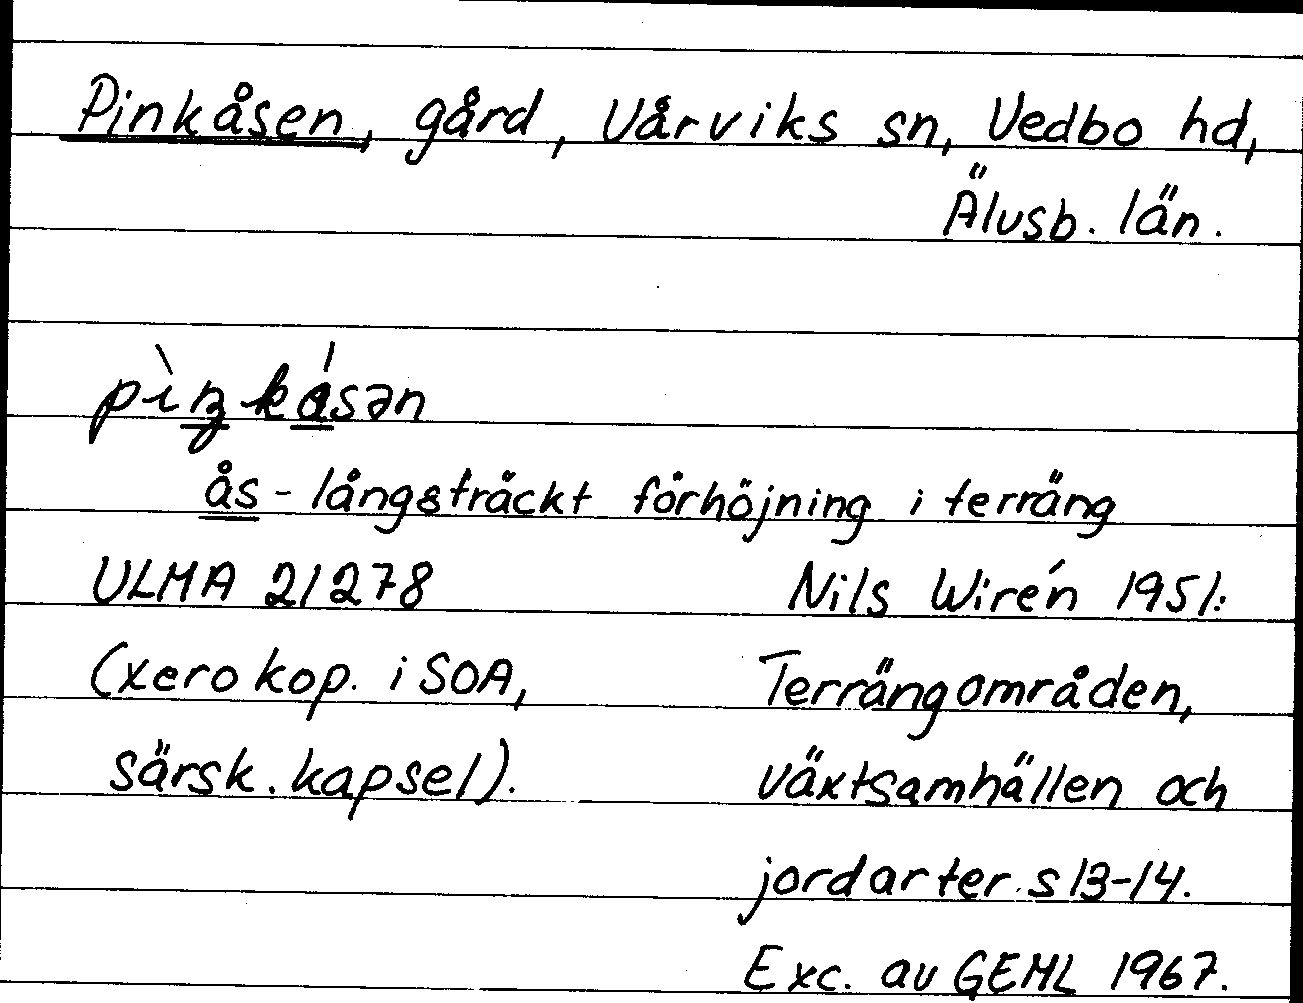 Pinkåsen, gård, Vårviks sn, Vedbo hd,
Älvsb. län.
pìŋkǻsən
ås - långsträckt förhöjning i terräng
ULMA 21278 Nils Wirén 1951:
(xerokop. i SOA, Terrängområden,
särsk. kapsel). växtsamhällen och
jordarter. s 13-14.
Exc. av GEML 1967.